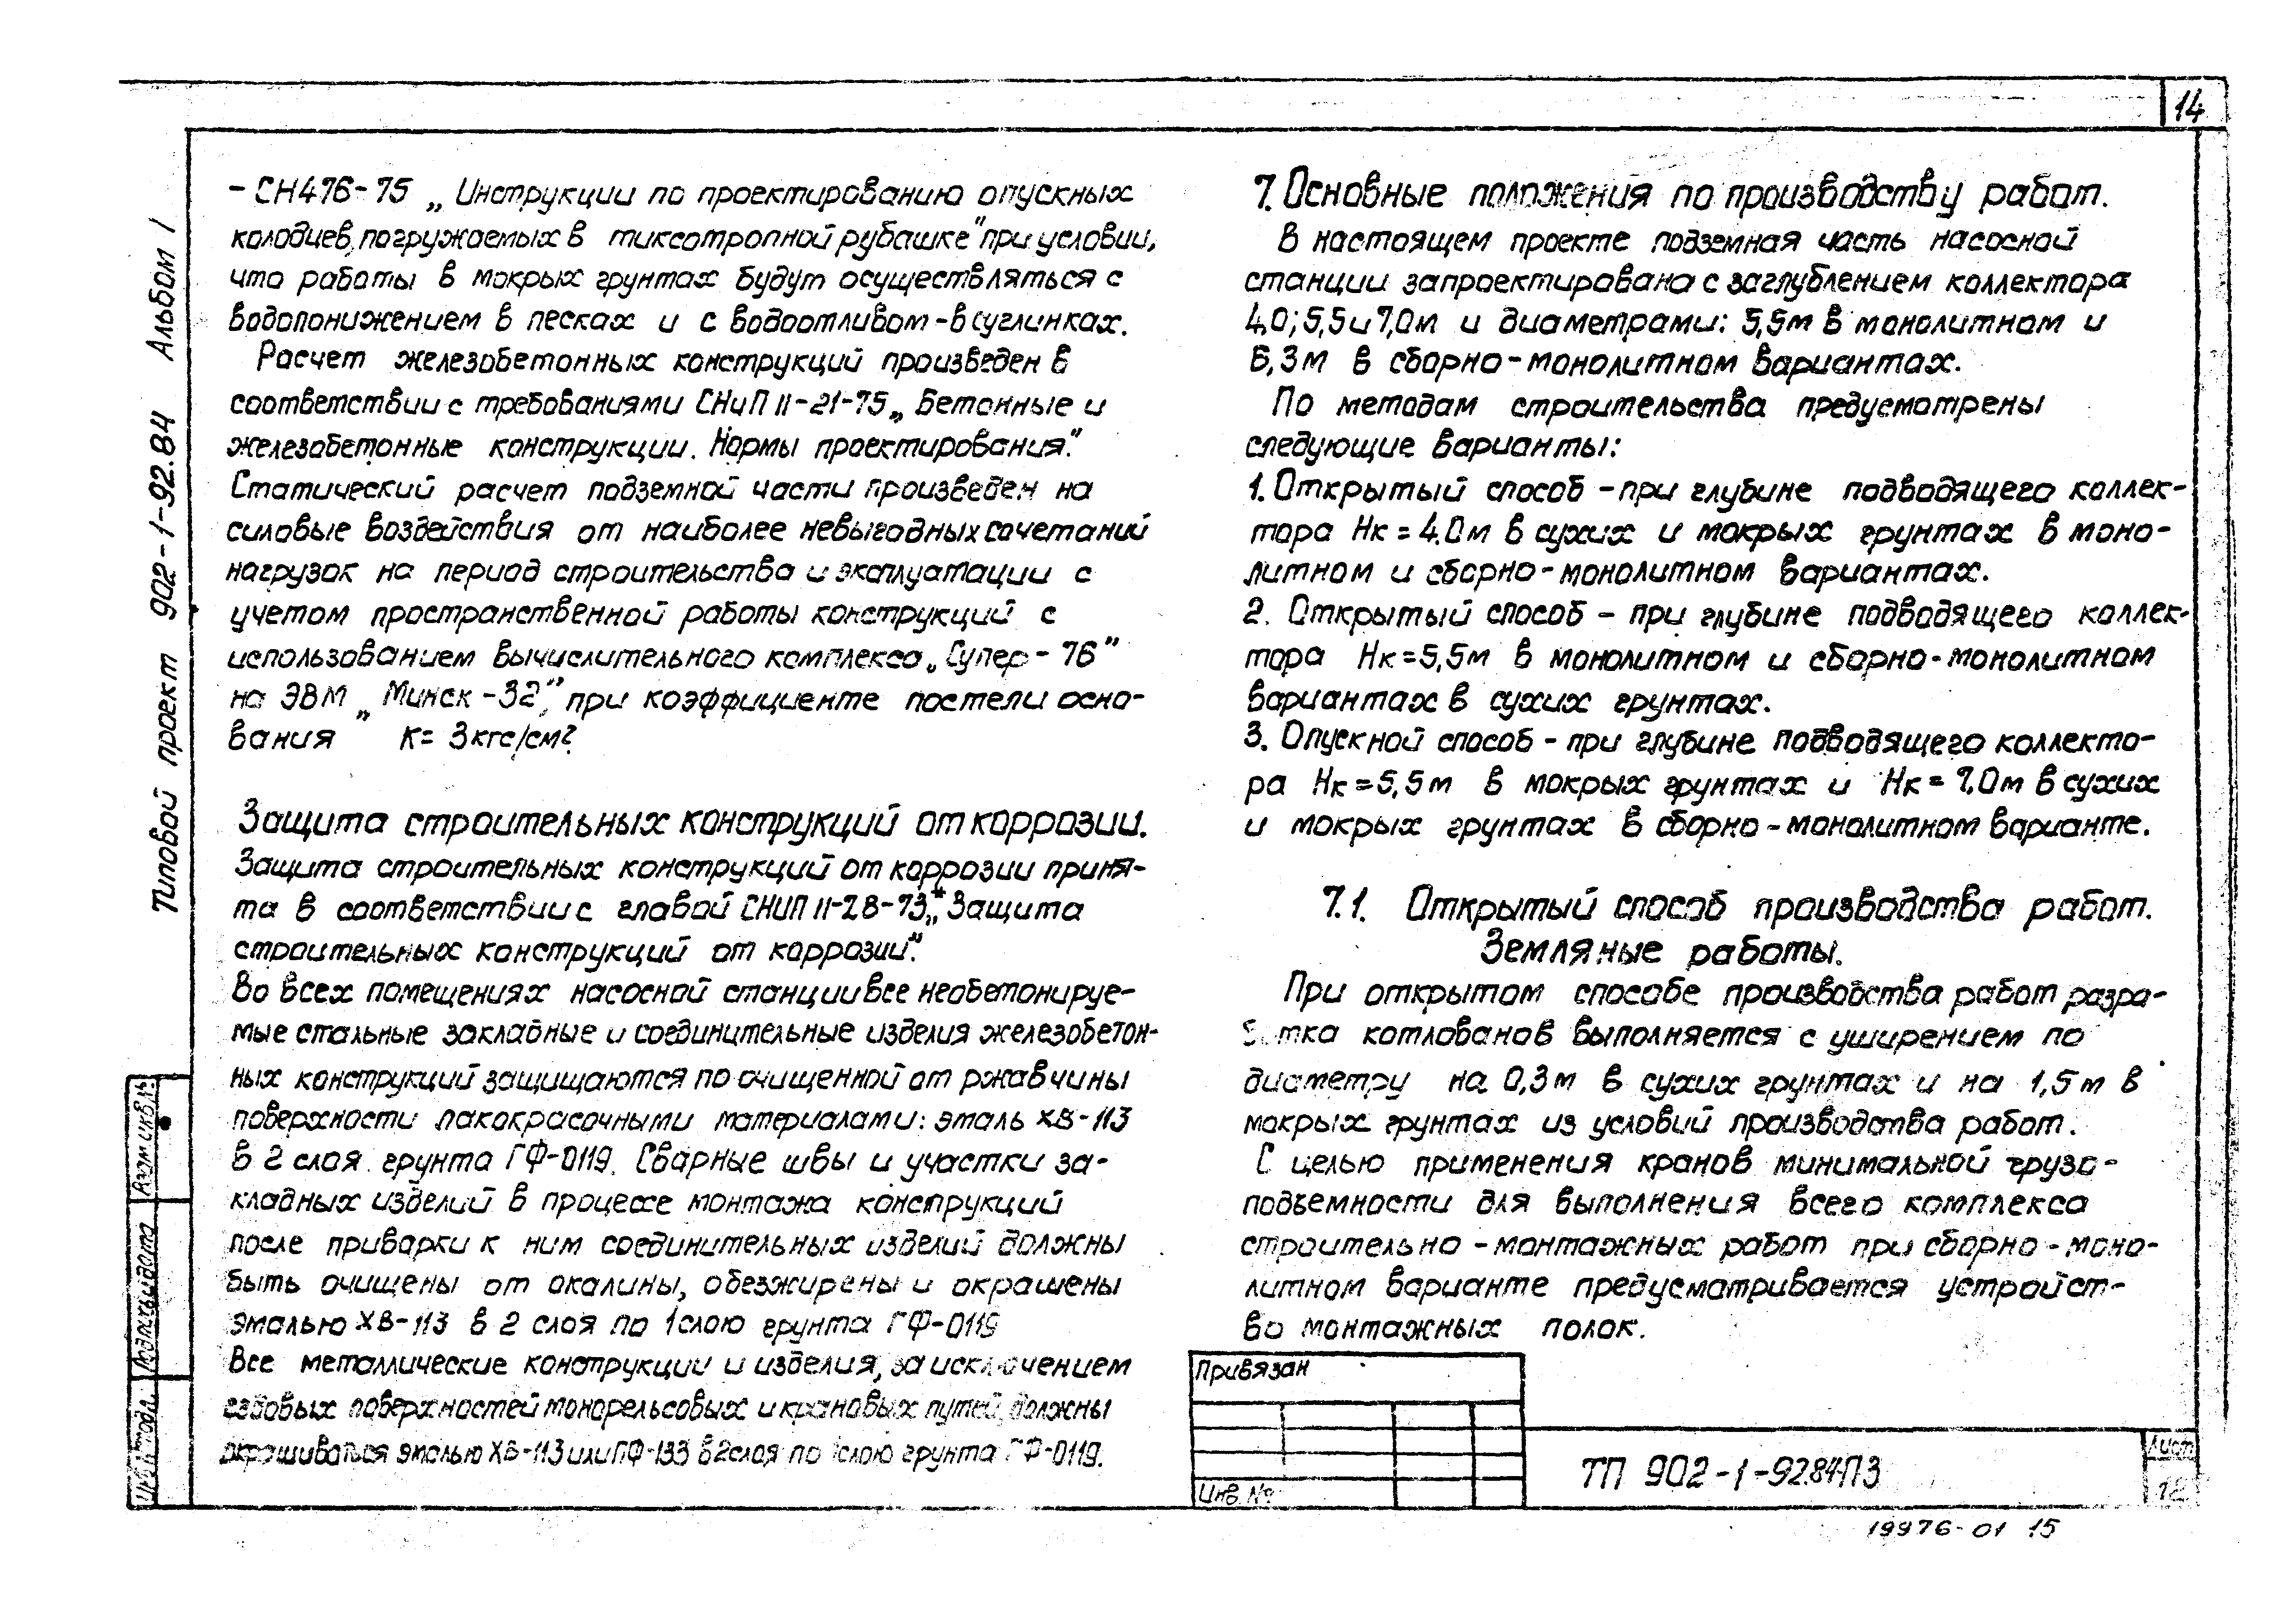 14
Типовой проект 902-1-92.84 Альбом I
- СН476-75 „Инструкции по проектированию опускных
колодцев, погружаемых в тиксотропной рубашке" при условии,
что работы в мокрых грунтах будут осуществляться с
водопонижением в песках и с водоотливом - в суглинках.
Расчет железобетонных конструкций произведен в
соответствии с требованиями СНиП II-21-75 „Бетонные и
железобетонные конструкции. Нормы проектирования".
Статический расчет подземной части произведен на
силовые воздействия от наиболее невыгодных сочетаний
нагрузок на период строительства и эксплуатации с
учетом пространственной работы конструкций с
использованием вычислительного комплекса „Супер-76"
на ЭВМ „Минск-32", при коэффициенте постели осно-
вания К= 3кгс/см².
Защита строительных конструкций от коррозии.
Защита строительных конструкций от коррозии приня-
та в соответствии с главой СНиП II-28-73* „Защита
строительных конструкций от коррозии".
Во всех помещениях насосной станции все необетонируе-
мые стальные закладные и соединительные изделия железобетон-
ных конструкций защищаются по очищенной от ржавчины
поверхности лакокрасочными материалами: эмаль ХВ-113
в 2 слоя грунта ГФ-0119. Сварные швы и участки за-
кладных изделий в процессе монтажа конструкций
после приварки к ним соединительных изделий должны
быть очищены от окалины, обезжирены и окрашены
эмалью ХВ-113 в 2 слоя по 1 слою грунта ГФ-0119
Все металлические конструкции и изделия, за исключением
ездовых поверхностей монорельсовых и крановых путей, должны
окрашиваться эмалью ХВ-113 или ПФ-133 в 2 слоя по 1 слою грунта ГФ-0119.
7. Основные положения по производству работ.
В настоящем проекте подземная часть насосной
станции запроектирована с заглублением коллектора
4,0; 5,5 и 7,0м и диаметрами: 5,5м в монолитном и
6,3м в сборно-монолитном вариантах.
По методам строительства предусмотрены
следующие варианты:
1. Открытый способ - при глубине подводящего коллек-
тора Нк = 4.0м в сухих и мокрых грунтах в моно-
литном и сборно-монолитном вариантах.
2. Открытый способ - при глубине подводящего коллек-
тора Нк=5,5м в монолитном и сборно-монолитном
вариантах в сухих грунтах.
3. Опускной способ - при глубине подводящего коллекто-
ра Нк=5,5м в мокрых грунтах и Нк= 7.0м в сухих
и мокрых грунтах в сборно-монолитном варианте.
7.1. Открытый способ производства работ.
Земляные работы.
При открытом способе производства работ разра-
ботка котлованов выполняется с уширением по
диаметру на 0,3м в сухих грунтах и на 1,5м в
мокрых грунтах из условий производства работ.
С целью применения кранов минимальной грузо-
подъемности для выполнения всего комплекса
строительно-монтажных работ при сборно-моно-
литном варианте предусматривается устройст-
во монтажных полок.
Взам инв.№
Подпись и дата
Инв.№ подл.
Привязан
Инв. №
ТП 902-1-92.84-ПЗ
Лист
12
19976-01 15